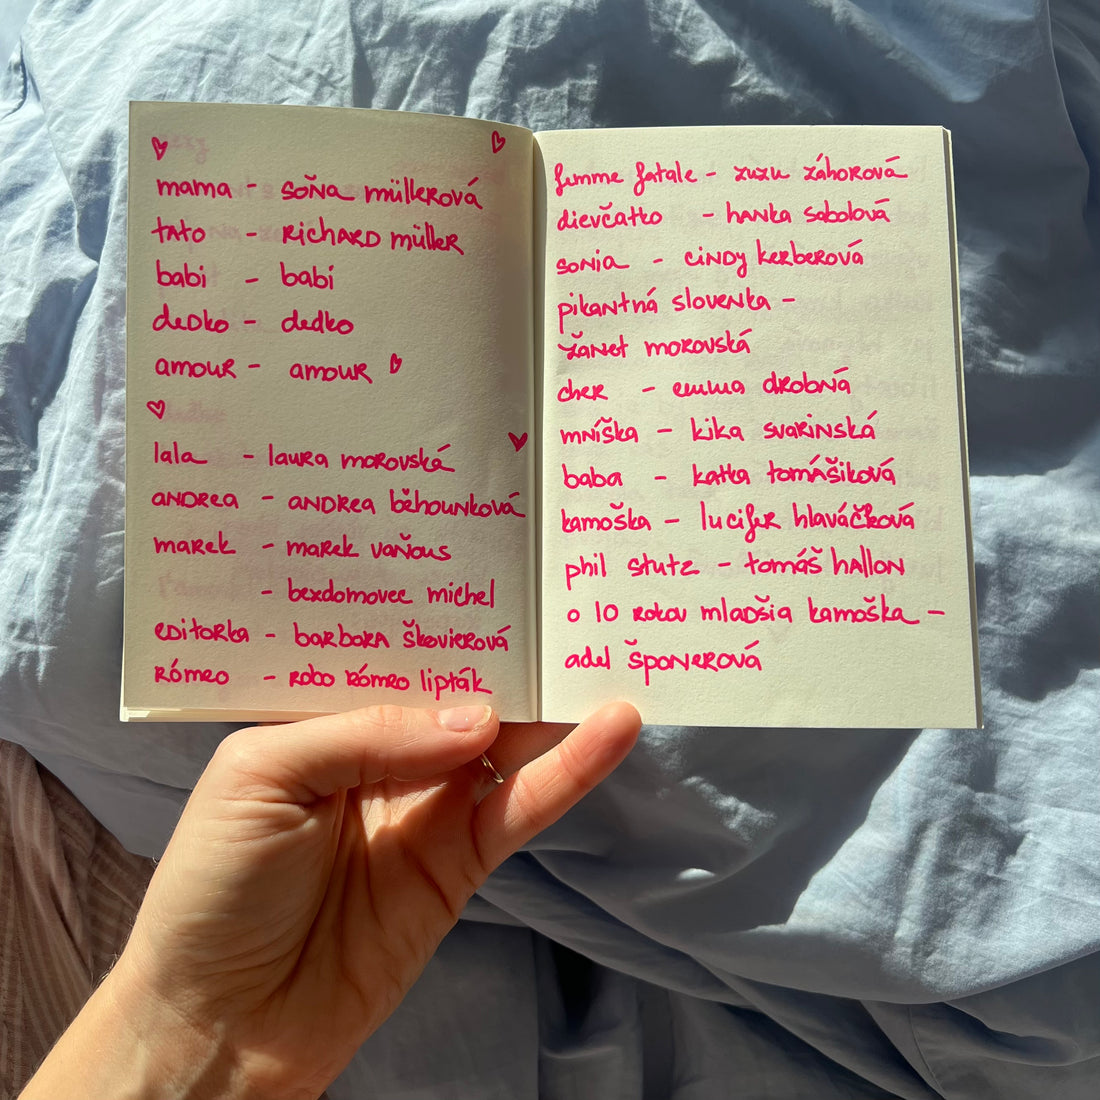 mama - soňa müllerová
tato - Richard müller
babi - babi
dedko - dedko
amour - amour
lala - laura morovská
andrea - andrea běhounková
marek - marek vaňous
- bezdomovec michel
editorka - barbora škovierová
rómeo - robo rómeo lipták
femme fatale - zuzu záhorová
dievčatko - hanka sobolová
sonia - cindy kerberová
pikantná slovenka -
žanet morovská
cher - emma drobná
mníška - kika svarinská
baba - katka tomášiková
kamoška - lucifer hlaváčková
phil stutz - tomáš hallon
o 10 rokov mladšia kamoška -
adel šponerová